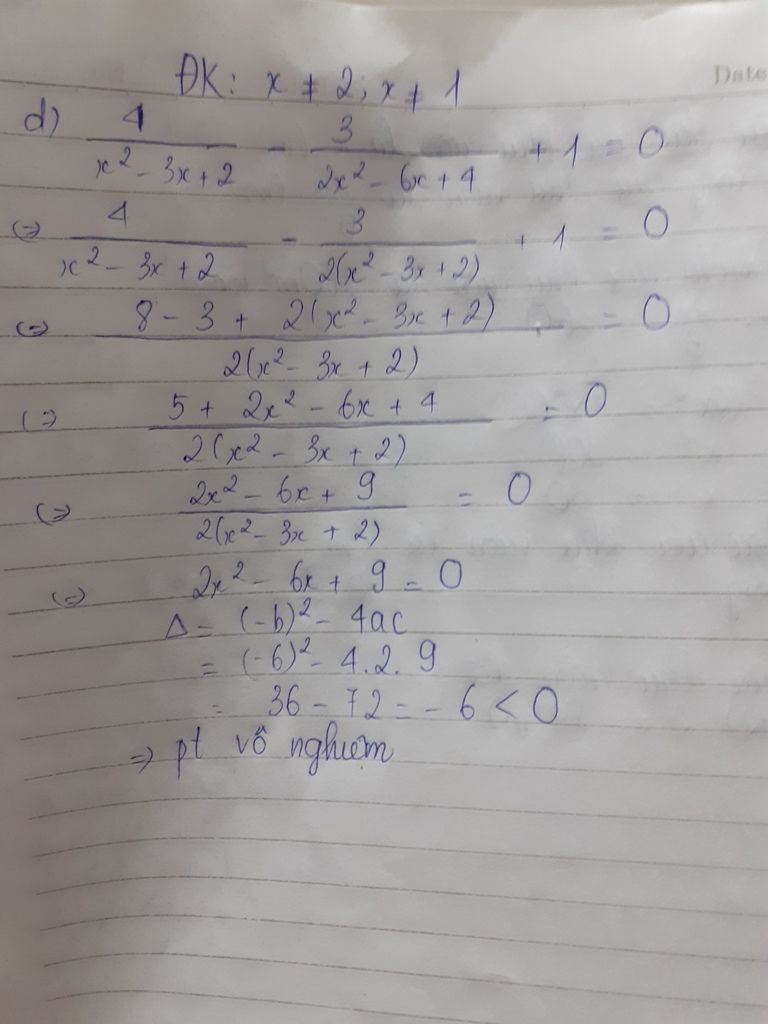 Date
ĐK: x ≠ 2; x ≠ 1
d) 4/(x² - 3x + 2) - 3/(2x² - 6x + 4) + 1 = 0
(=) 4/(x² - 3x + 2) - 3/(2(x² - 3x + 2)) + 1 = 0
(=) (8 - 3 + 2(x² - 3x + 2))/(2(x² - 3x + 2)) = 0
(=) (5 + 2x² - 6x + 4)/(2(x² - 3x + 2)) = 0
(=) (2x² - 6x + 9)/(2(x² - 3x + 2)) = 0
(=) 2x² - 6x + 9 = 0
Δ = (-b)² - 4ac
= (-6)² - 4.2.9
= 36 - 72 = - 6 < 0
=> pt vô nghiệm